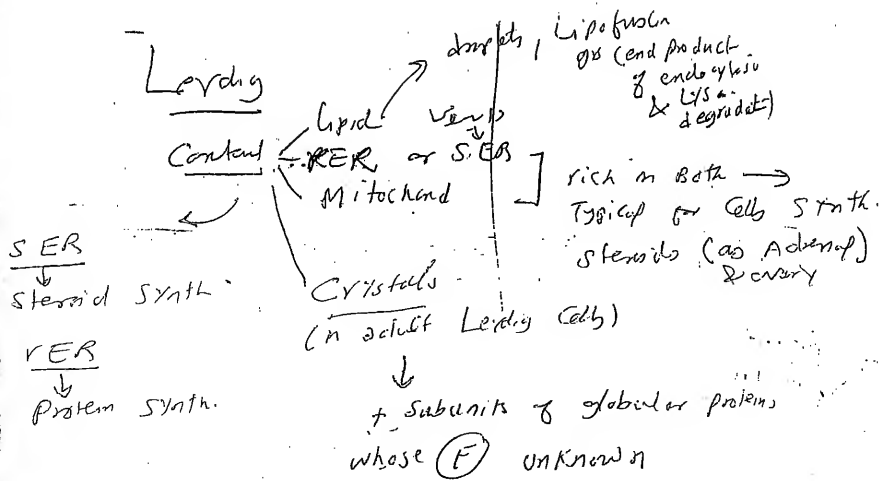 Leydig
Content
Lipid
droplets, Lipofuscin
grs (end product
of endocytosis
& Lys.
degradation)
RER or SER
Mitochond
rich in Both →
Typical for Cells Synth.
Steroids (as Adrenal)
& ovary
SER
↓
Steroid Synth.
rER
↓
Protein Synth.
Crystals
(in adult Leydig Cells)
↓
+ Subunits of globular proteins
whose (F) unknown